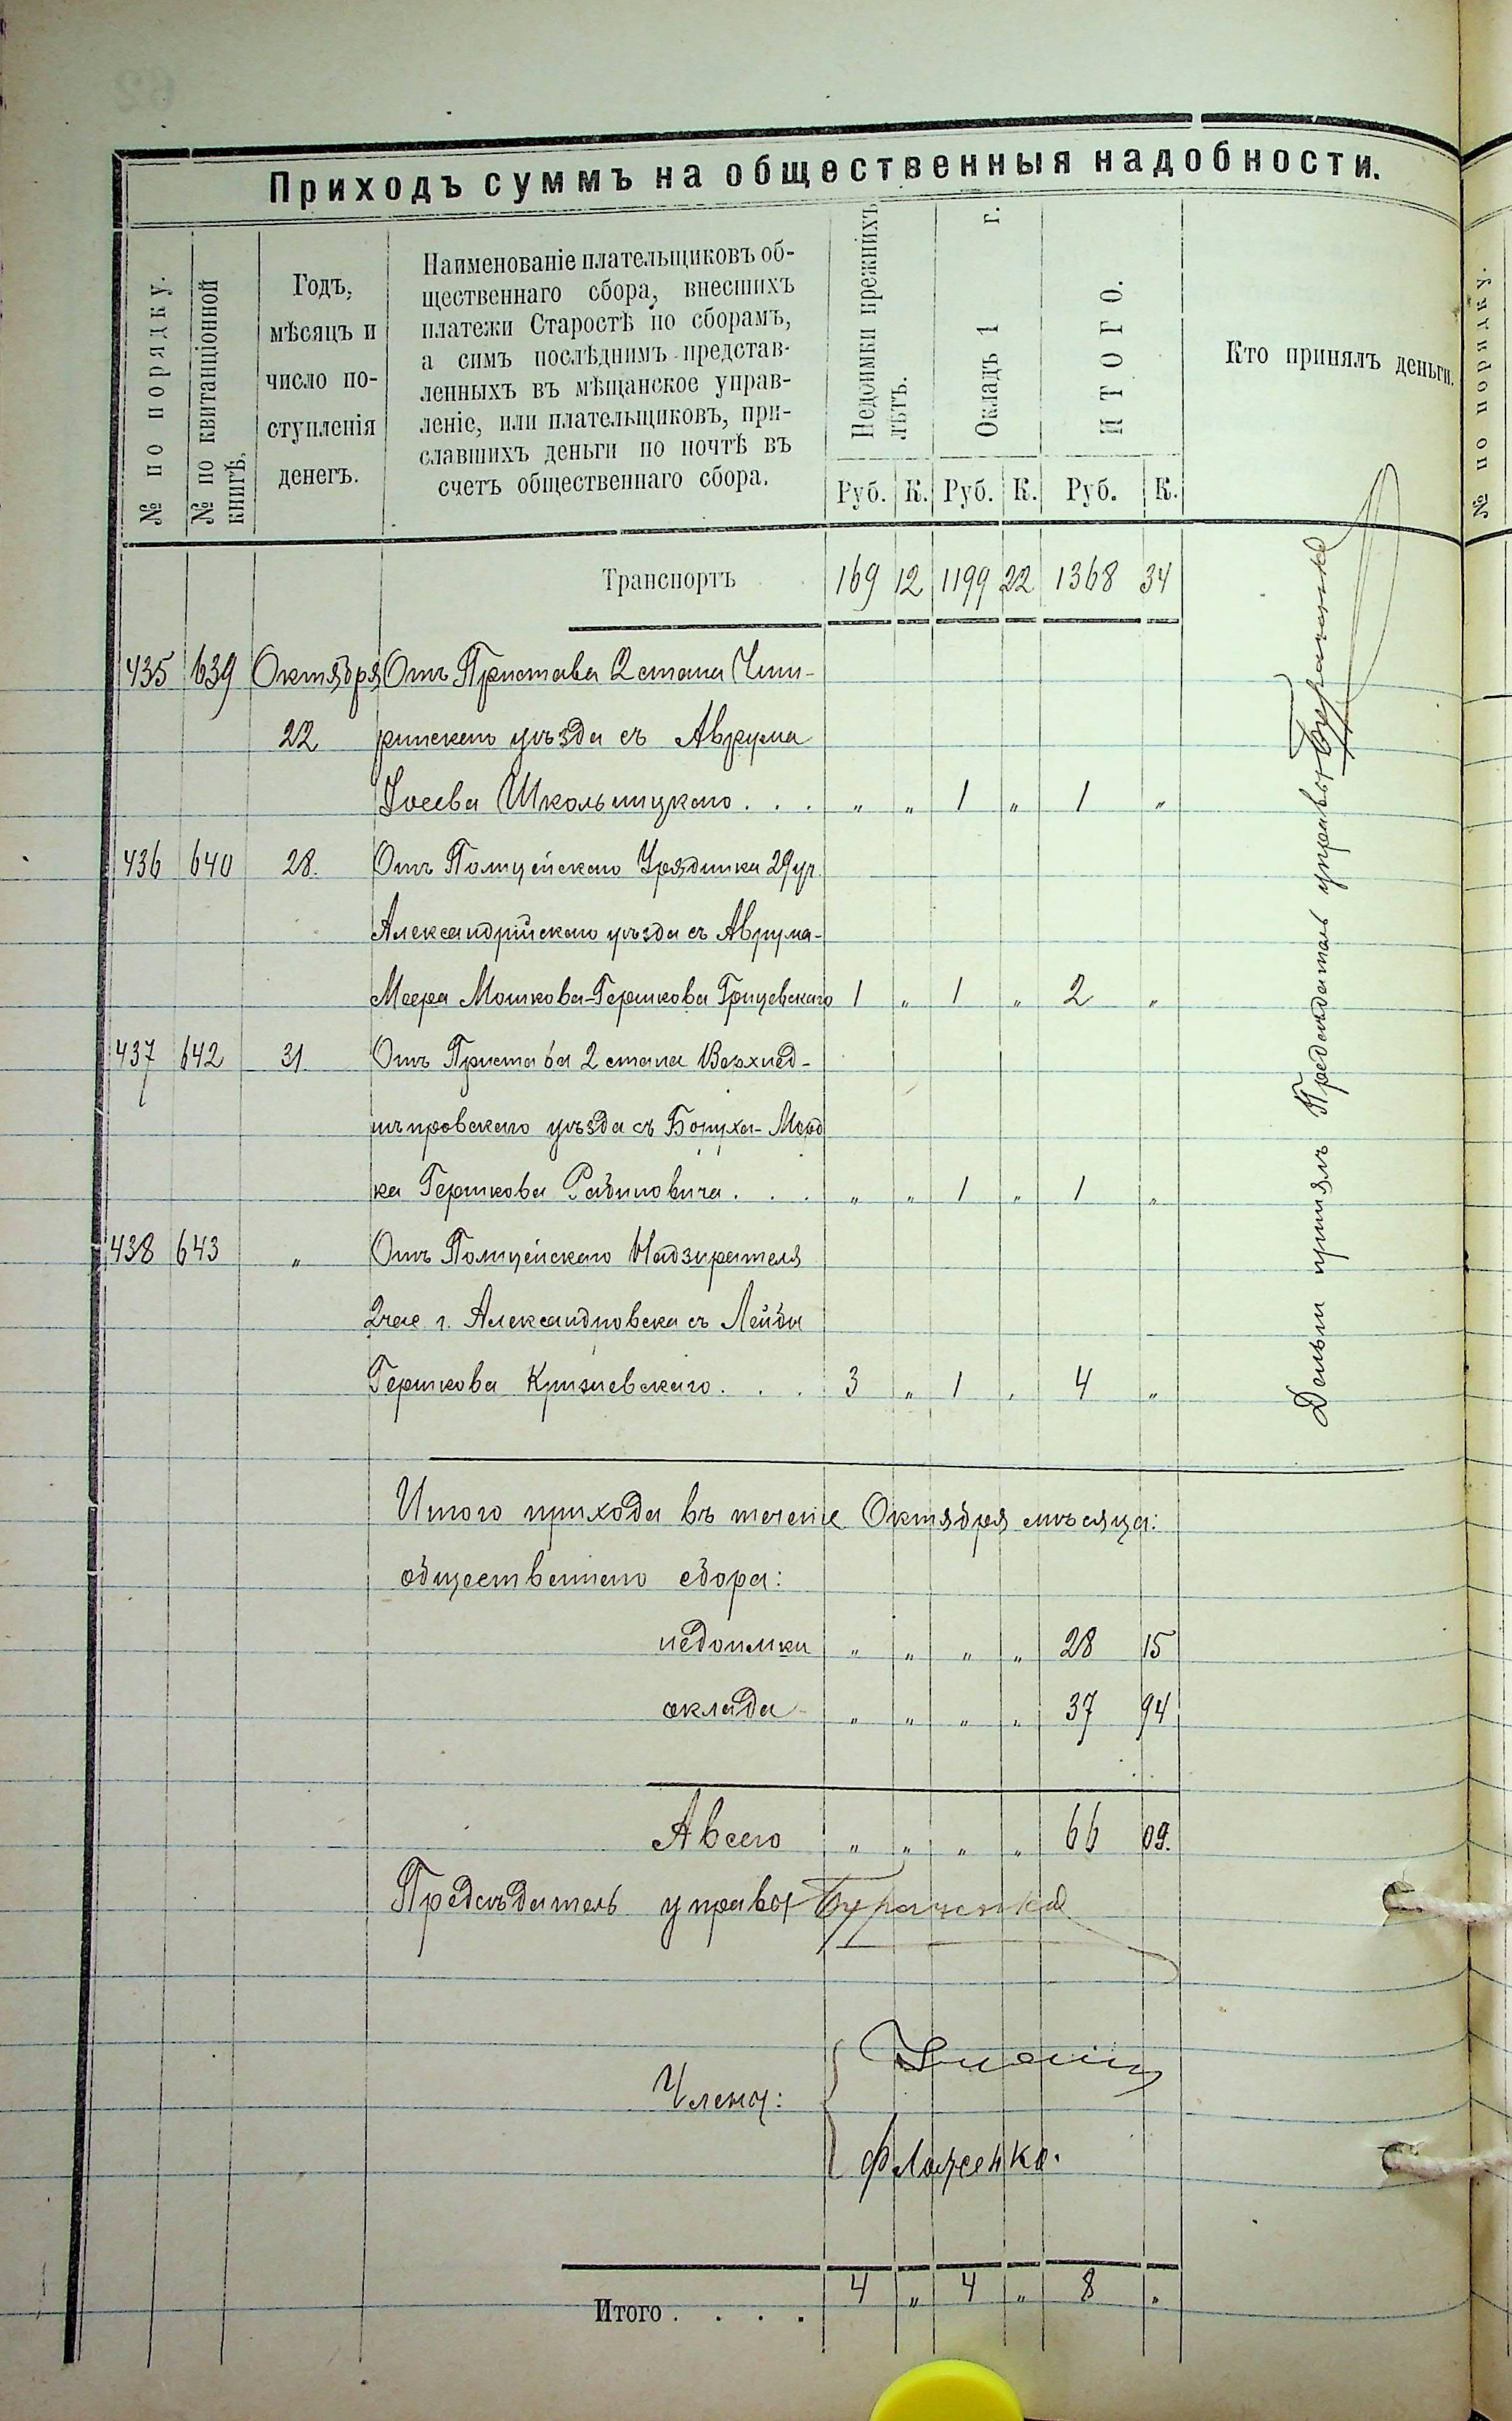 Приходъ суммъ на общественныя надобности.
№ по порядку.
№ по квитанціонной книгѣ.
Годъ,
мѣсяцъ и
число по-
ступленія
денегъ.
Наименованіе плательщиковъ об-
щественнаго сбора, внесшихъ
платежи Старостѣ по сборамъ,
а симъ послѣднимъ представ-
ленныхъ въ мѣщанское управ-
леніе, или плательщиковъ, при-
славшихъ деньги по почтѣ въ
счетъ общественнаго сбора.
Недоимки прежнихъ
лѣтъ.
Окладъ 1 г.
ИТОГО.
Кто принялъ деньги.
Руб. К. Руб. К. Руб. К.
№ по порядку.
Транспортъ 169 12 1199 22 1368 34
435 639 Октября Отъ Пристава 2 стана Чиги-
22 ринскаго уѣзда съ Аврума
Іосева Школьницкаго . . . „ „ 1 „ 1 „
436 640 28. Отъ Полицейскаго Урядника 29 уч.
Александрійскаго уѣзда съ Аврума-
Меера Мошкова-Гершкова Грицевскаго 1 „ 1 „ 2 „
437 642 31. Отъ Пристава 2 стана Верхнед-
нѣпровскаго уѣзда съ Боруха-Морд
ка Гершкова Рабиновича . . . „ „ 1 „ 1 „
438 643 „ Отъ Полицейскаго Надзирателя
2 час. г. Александровска съ Лейбы
Гершкова Кризневскаго . . . 3 „ 1 „ 4 „
Деньги принялъ Предсѣдатель управы
Итого прихода въ теченіе Октября мѣсяца:
общественнаго сбора:
недоимки „ „ „ „ 28 15
оклада „ „ „ „ 37 94
А всего „ „ „ „ 66 09.
Предсѣдатель управы
Члены:
Итого . . . . 4 „ 4 „ 8 „